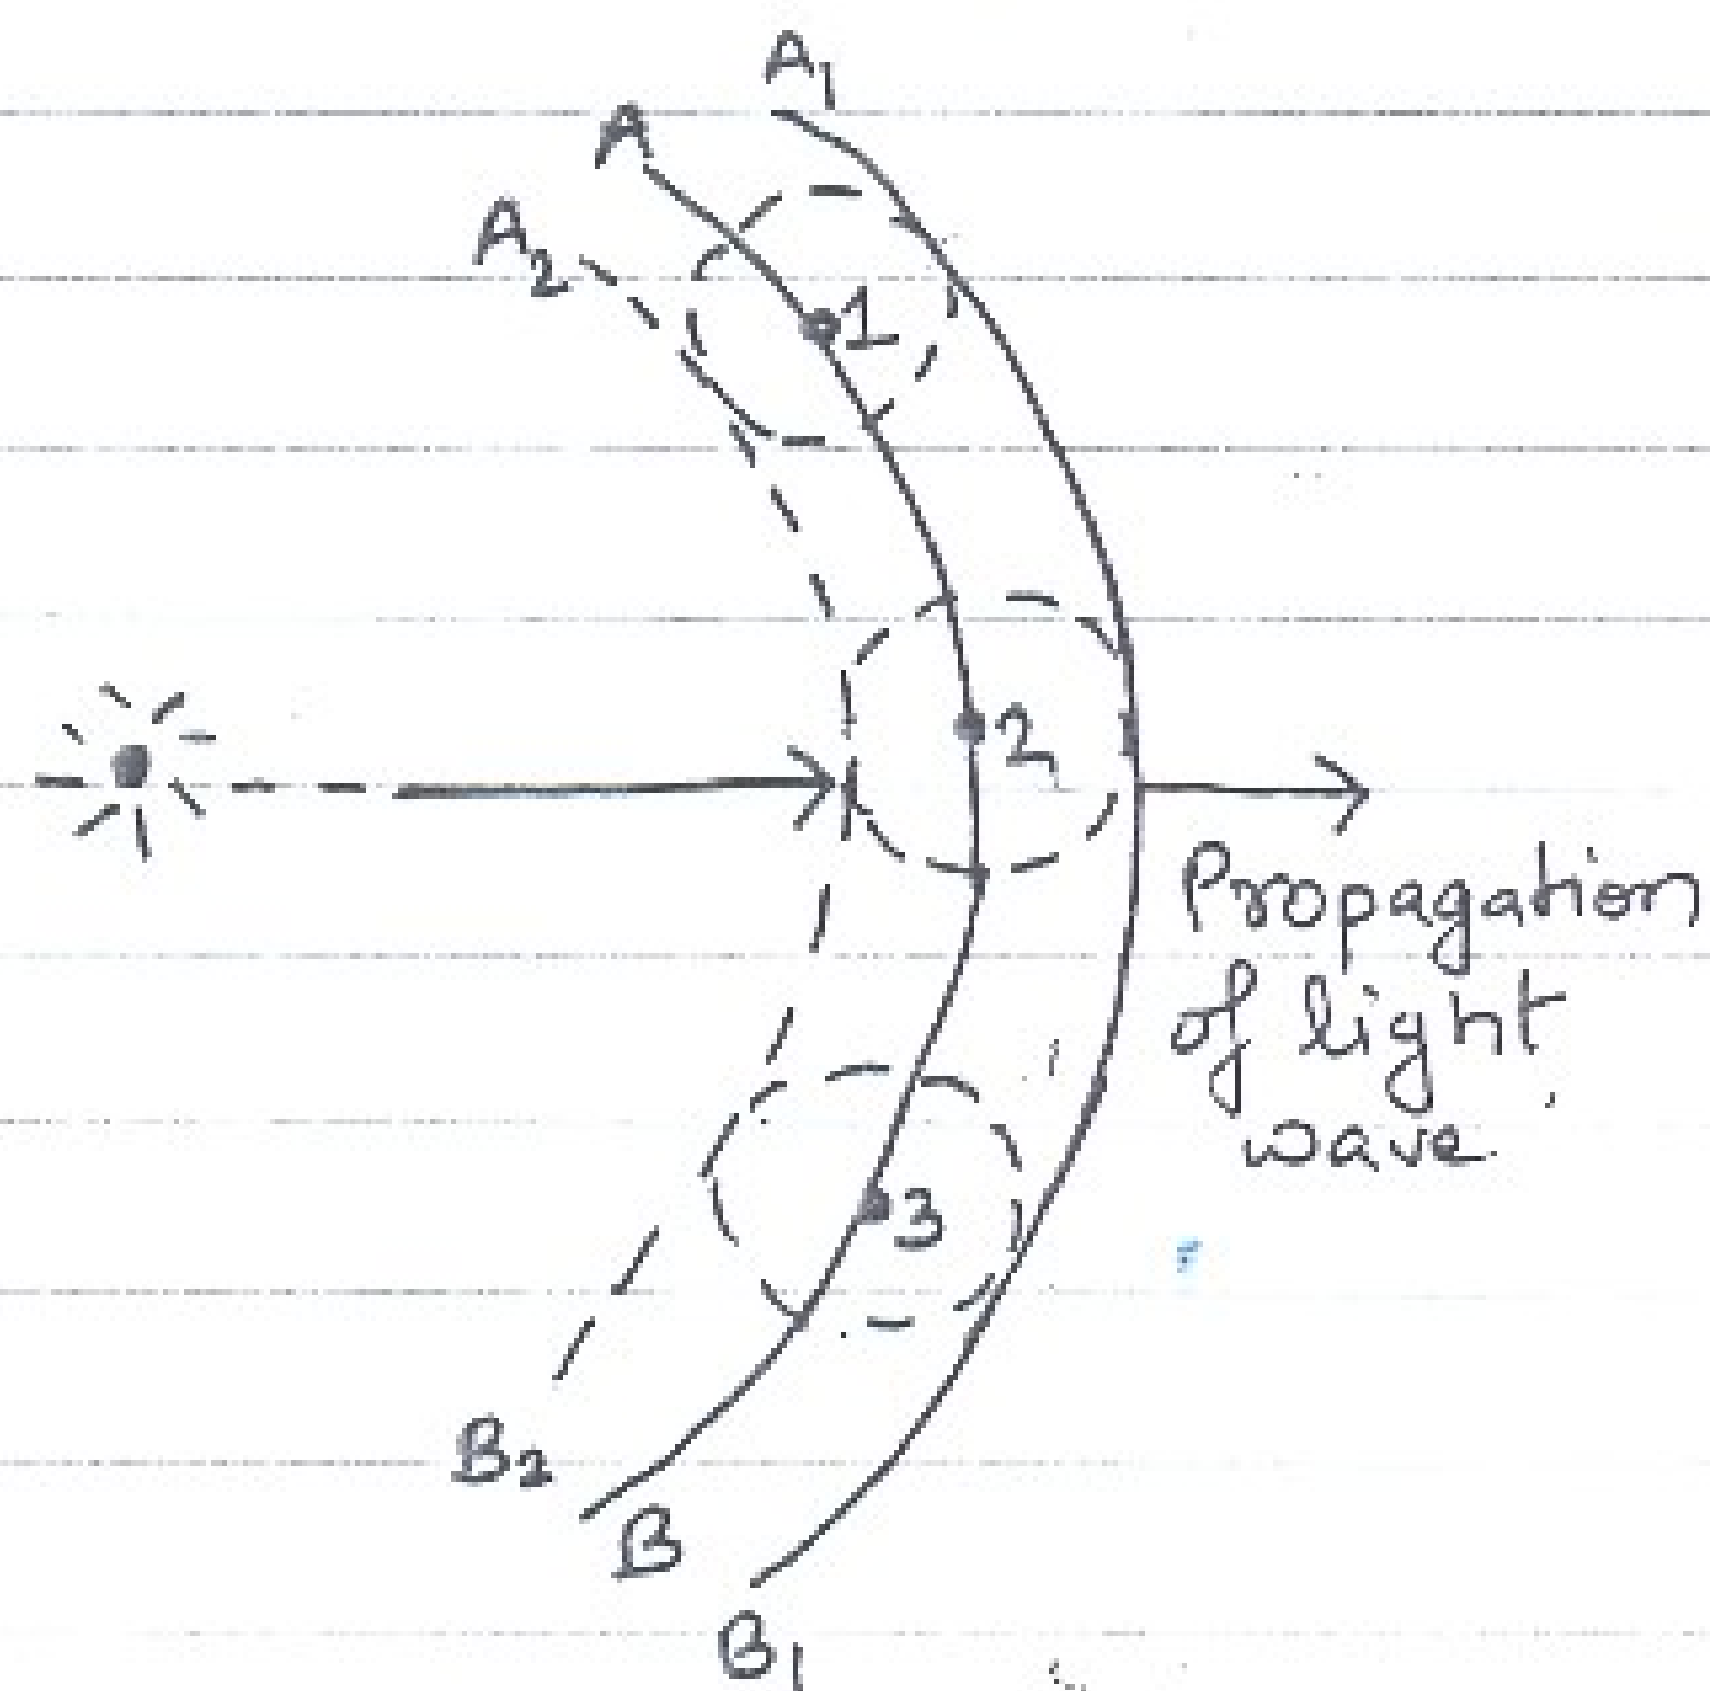 A₁
A
A₂
1
2
Propagation
of light
wave
3
B₂
B
B₁